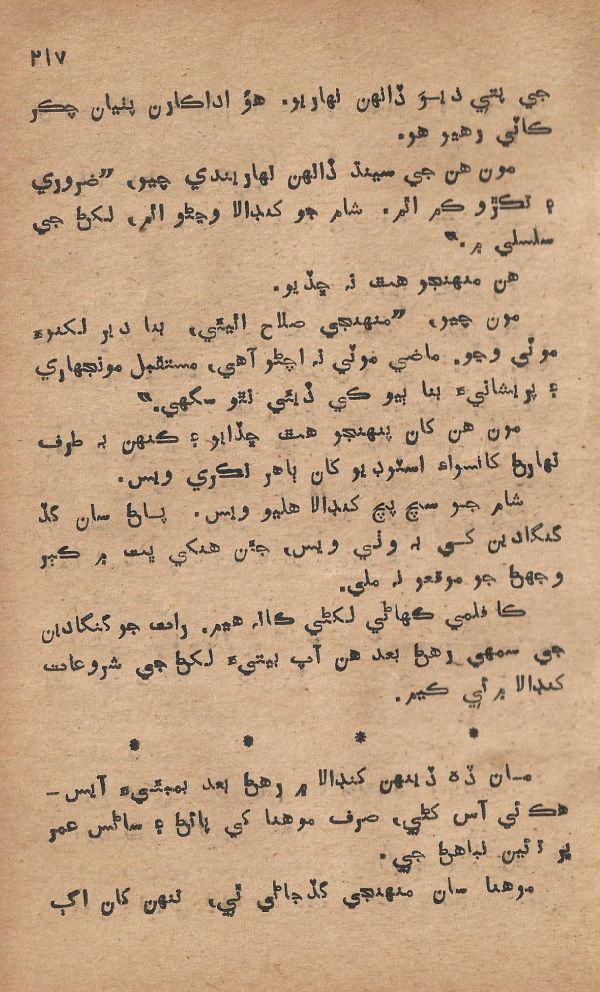 ٢١٧
جي پتي ديوَ ڏانهن نهاريو. هوُ اداڪارن پٺيان چڪر
ڪاٽي رهيو هو.
مون هن جي سينڌ ڏانهن نهاريندي چيو، ”ضروري
۽ تڪڙو ڪم اٿم. شام جو کنڊالا وڃڻو اٿم، لکڻ جي
سلسلي ۾.“
هن منهنجو هٿ نہ ڇڏيو.
مون چيو، ”منهنجي صلاح اٿيئي، بنا دير لکنوءَ
موٽي وڃو. ماضي موٽي نہ اچڻو آهي، مستقبل مونجهاري
۽ پريشانيءَ بنا ٻيو ڪي ڏيئي نٿو سگهي.“
مون هن کان پنهنجو هٿ ڇڏايو ۽ ڪنهن بہ طرف
نهارڻ کانسواءِ اسٽوڊيو کان ٻاهر نڪري ويس.
شام جو سچ پچ کنڊالا هليو ويس. پاڻ سان گڏ
گنگادين کي بہ وٺي ويس، جئن هنکي ڀت ۾ ڪير
وجهڻ جو موقعو نہ ملي.
ڪا فلمي ڪهاڻي لکڻي ڪانہ هيم. رات جو گنگادين
جي سمهي رهڻ بعد هن آپ بيتيءَ لکڻ جي شروعات
کنڊالا ۾ ئي ڪيم.
* * * *
مان ڏهہ ڏينهن کنڊالا ۾ رهڻ بعد بمبئيءَ آيس –
هڪ ئي آس کڻي، صرف موهنا کي پائڻ ۽ ساڻس عمر
ڀر تائين نباهڻ جي.
موهنا سان منهنجي گڏجاڻي ٿي، تنهن کان اڳ